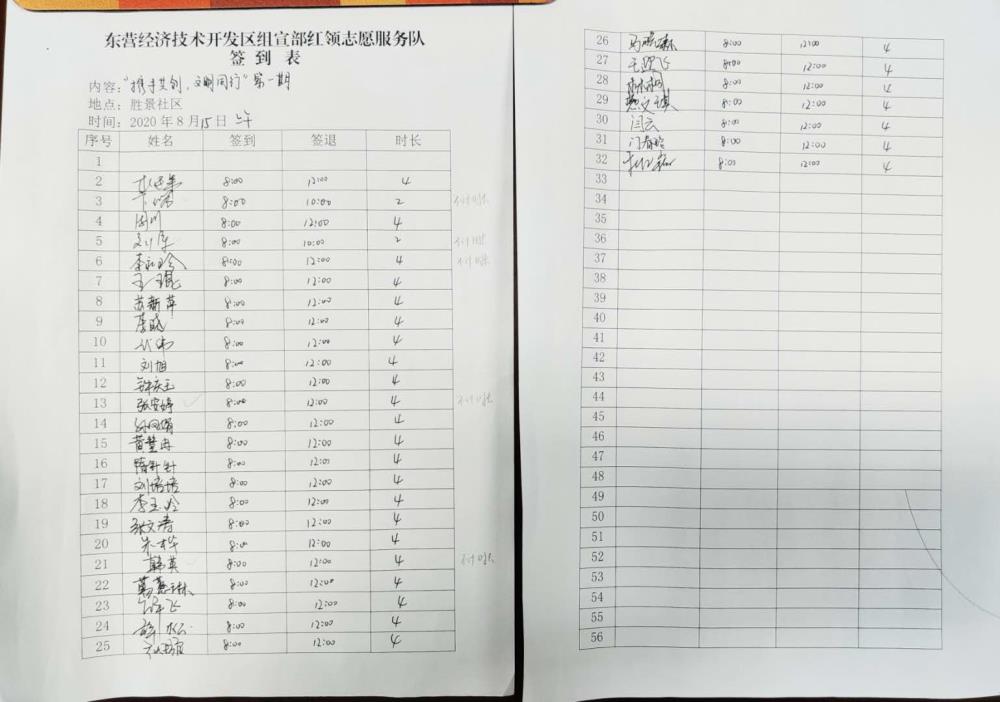 东营经济技术开发区组宣部红领志愿服务队
签 到 表
内容：“携手共创，文明同行”第一期
地点：胜景社区
时间：2020年8月15日 上午
序号 姓名 签到 签退 时长
1
2 8:00 12:00 4
3 8:00 10:00 2 不计时长
4 8:00 12:00 4
5 8:00 10:00 2 不计时长
6 8:00 12:00 4 不计时长
7 8:00 12:00 4
8 苏新萍 8:00 12:00 4
9 李晓 8:00 12:00 4
10 8:00 12:00 4
11 刘旭 8:00 12:00 4
12 8:00 12:00 4
13 张安婷 8:00 12:00 4 不计时长
14 8:00 12:00 4
15 黄慧冉 8:00 12:00 4
16 8:00 12:00 4
17 刘培培 8:00 12:00 4
18 李玉玲 8:00 12:00 4
19 张文涛 8:00 12:00 4
20 8:00 12:00 4
21 韩英 8:00 12:00 4 不计时长
22 8:00 12:00 4
23 8:00 12:00 4
24 8:00 12:00 4
25 8:00 12:00 4
26 8:00 12:00 4
27 8:00 12:00 4
28 8:00 12:00 4
29 8:00 12:00 4
30 闫云 8:00 12:00 4
31 8:00 12:00 4
32 8:00 12:00 4
33
34
35
36
37
38
39
40
41
42
43
44
45
46
47
48
49
50
51
52
53
54
55
56